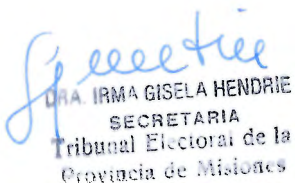 DRA. IRMA GISELA HENDRIE
SECRETARIA
Tribunal Electoral de la
Provincia de Misiones